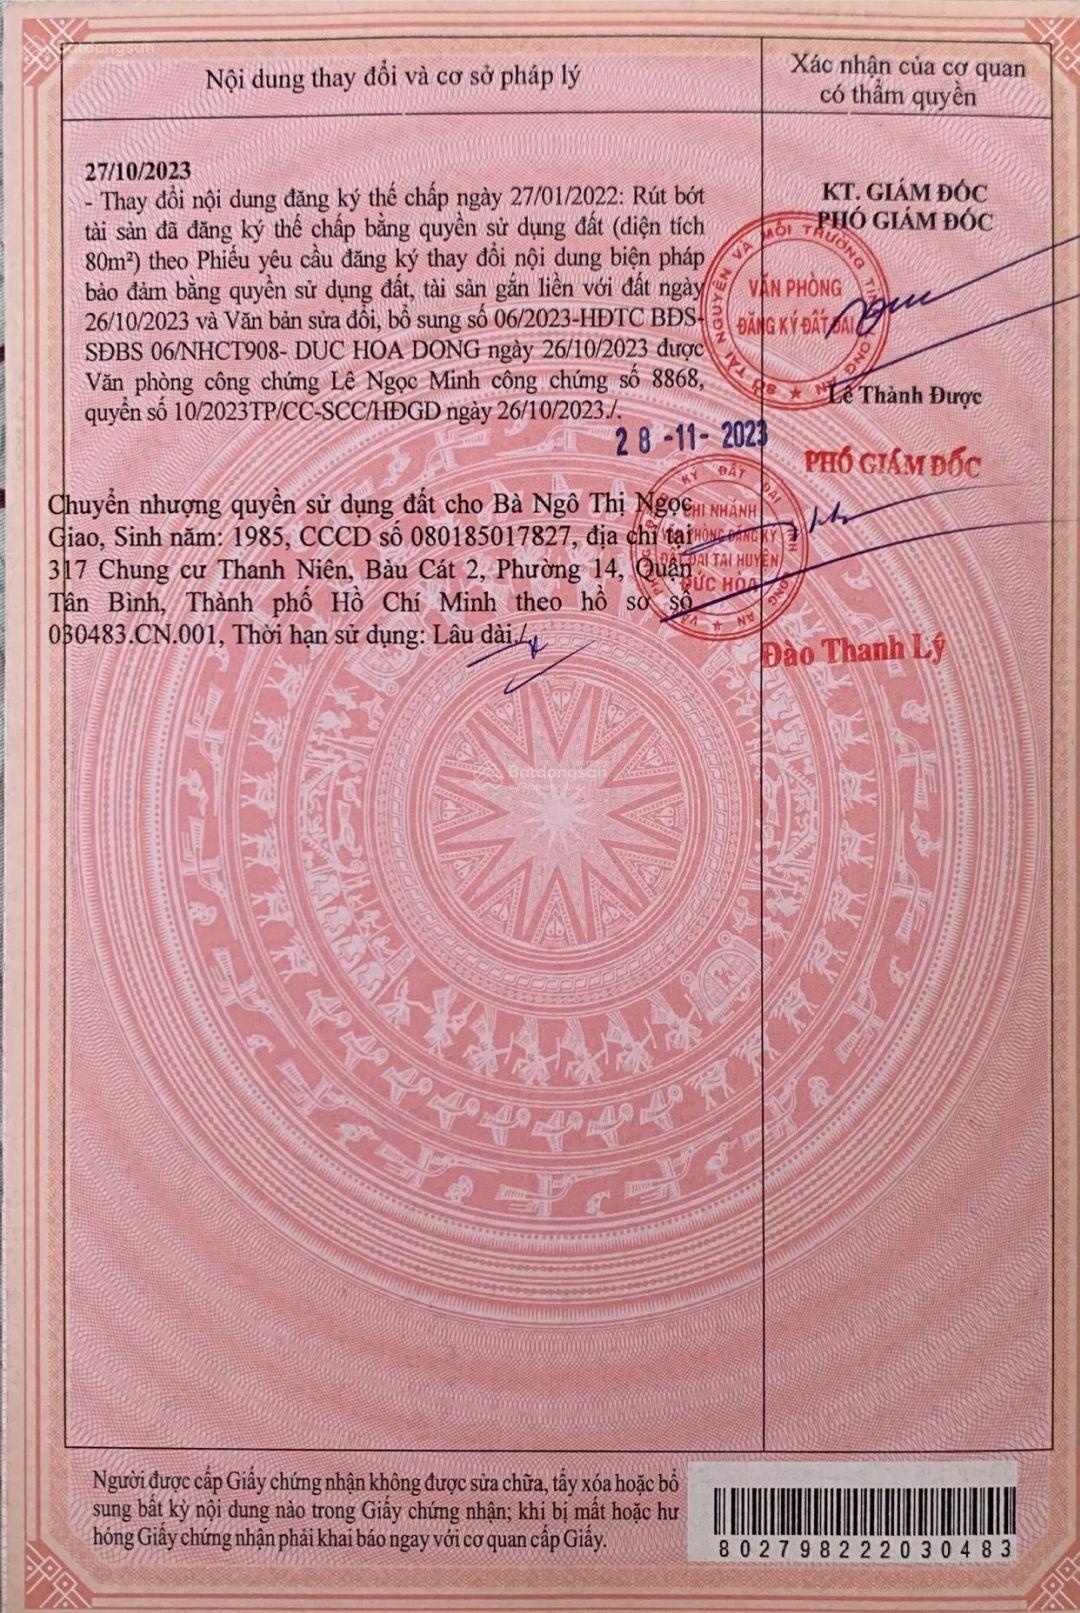 Nội dung thay đổi và cơ sở pháp lý
Xác nhận của cơ quan
có thẩm quyền
27/10/2023
- Thay đổi nội dung đăng ký thế chấp ngày 27/01/2022: Rút bớt
tài sản đã đăng ký thế chấp bằng quyền sử dụng đất (diện tích
80m²) theo Phiếu yêu cầu đăng ký thay đổi nội dung biện pháp
bảo đảm bằng quyền sử dụng đất, tài sản gắn liền với đất ngày
26/10/2023 và Văn bản sửa đổi, bổ sung số 06/2023-HĐTC BĐS-
SĐBS 06/NHCT908- DUC HOA DONG ngày 26/10/2023 được
Văn phòng công chứng Lê Ngọc Minh công chứng số 8868,
quyển số 10/2023TP/CC-SCC/HĐGD ngày 26/10/2023./.
KT. GIÁM ĐỐC
PHÓ GIÁM ĐỐC
SỞ TÀI NGUYÊN VÀ MÔI TRƯỜNG TỈNH LONG AN
VĂN PHÒNG
ĐĂNG KÝ ĐẤT ĐAI
Lê Thành Được
28-11-2023
PHÓ GIÁM ĐỐC
Chuyển nhượng quyền sử dụng đất cho Bà Ngô Thị Ngọc
Giao, Sinh năm: 1985, CCCD số 080185017827, địa chỉ tại
317 Chung cư Thanh Niên, Bàu Cát 2, Phường 14, Quận
Tân Bình, Thành phố Hồ Chí Minh theo hồ sơ số
030483.CN.001, Thời hạn sử dụng: Lâu dài./.
CHI NHÁNH
VĂN PHÒNG ĐĂNG KÝ
ĐẤT ĐAI TẠI HUYỆN
ĐỨC HÒA
Đào Thanh Lý
Batdongsan
Người được cấp Giấy chứng nhận không được sửa chữa, tẩy xóa hoặc bổ
sung bất kỳ nội dung nào trong Giấy chứng nhận; khi bị mất hoặc hư
hỏng Giấy chứng nhận phải khai báo ngay với cơ quan cấp Giấy.
802798222030483